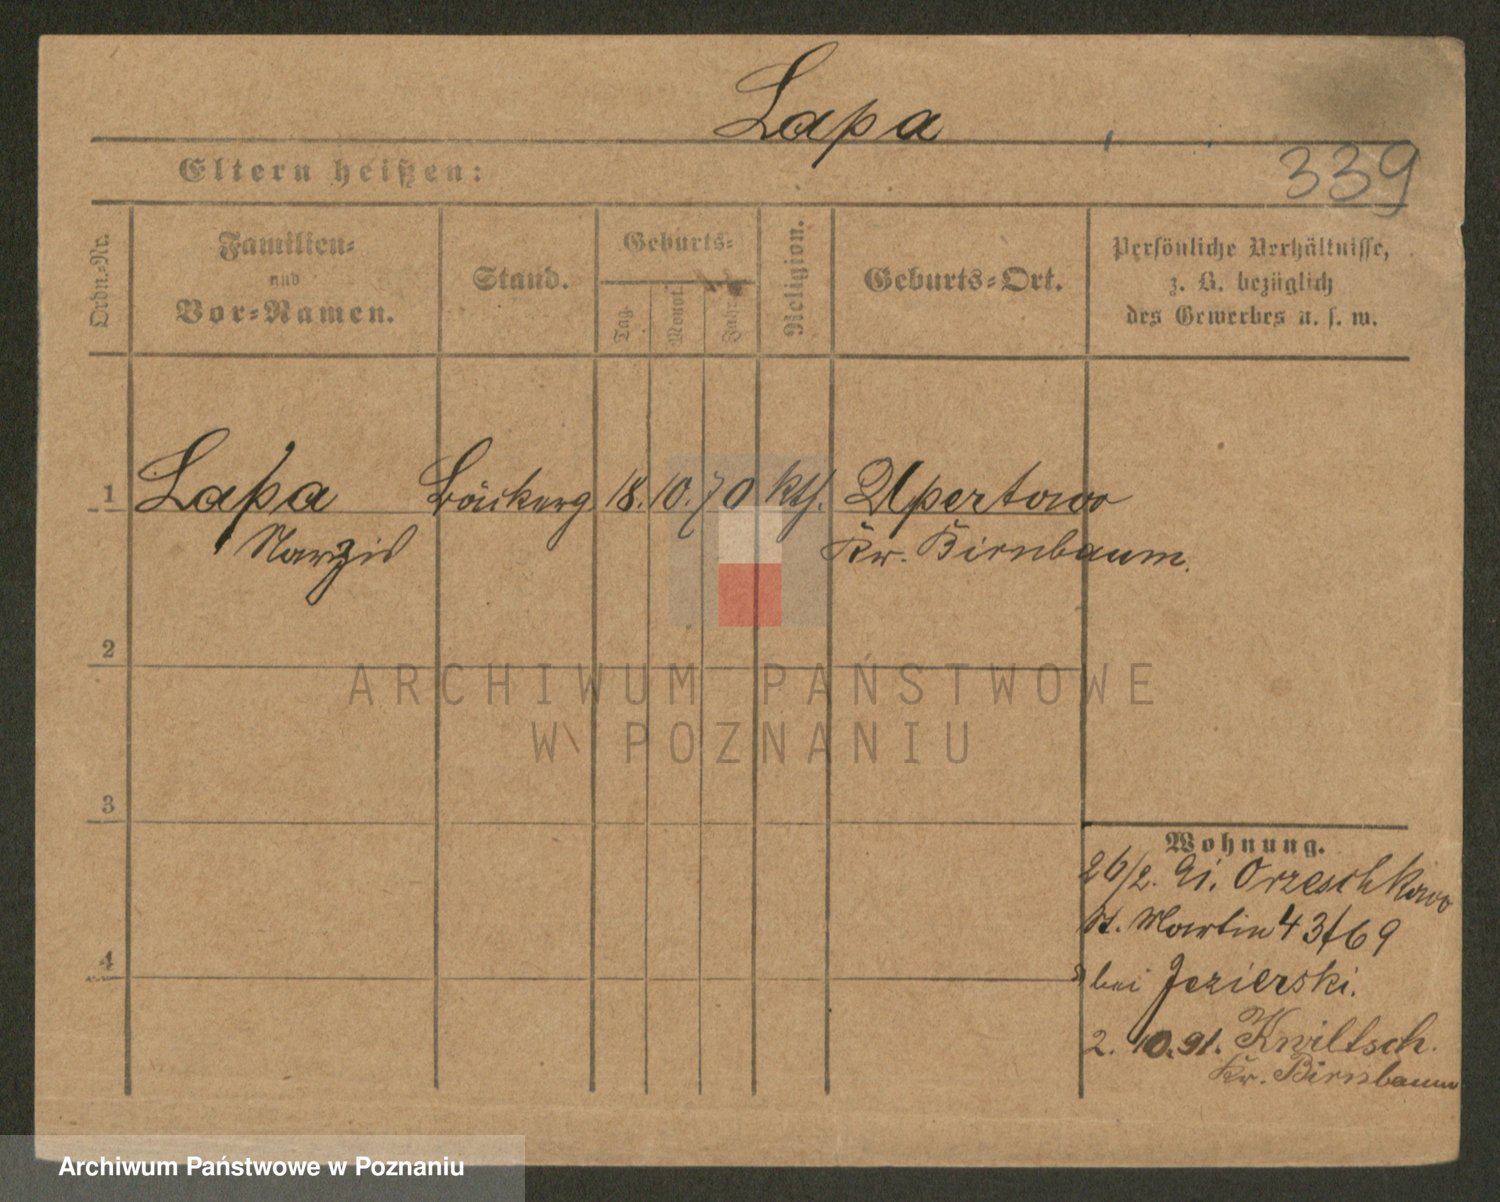 Lapa
339
Eltern heißen:
Ordn.-Nr.
Familien-
und
Vor-Namen.
Stand.
Geburts-
Tag.
Monat.
Jahr.
Religion.
Geburts-Ort.
Persönliche Verhältnisse,
z. B. bezüglich
des Gewerbes u. s. w.
1 Lapa Bäckerg 18. 10. 70 kth. Upertowo
Narzis Kr. Birnbaum.
2
ARCHIWUM PAŃSTWOWE
W POZNANIU
3
Wohnung.
26/2. 91. Orzeschkowo
St. Martin 43/69
4
bei Jezierski.
2. 10. 91. Kwiltsch.
Kr. Birnbaum
Archiwum Państwowe w Poznaniu